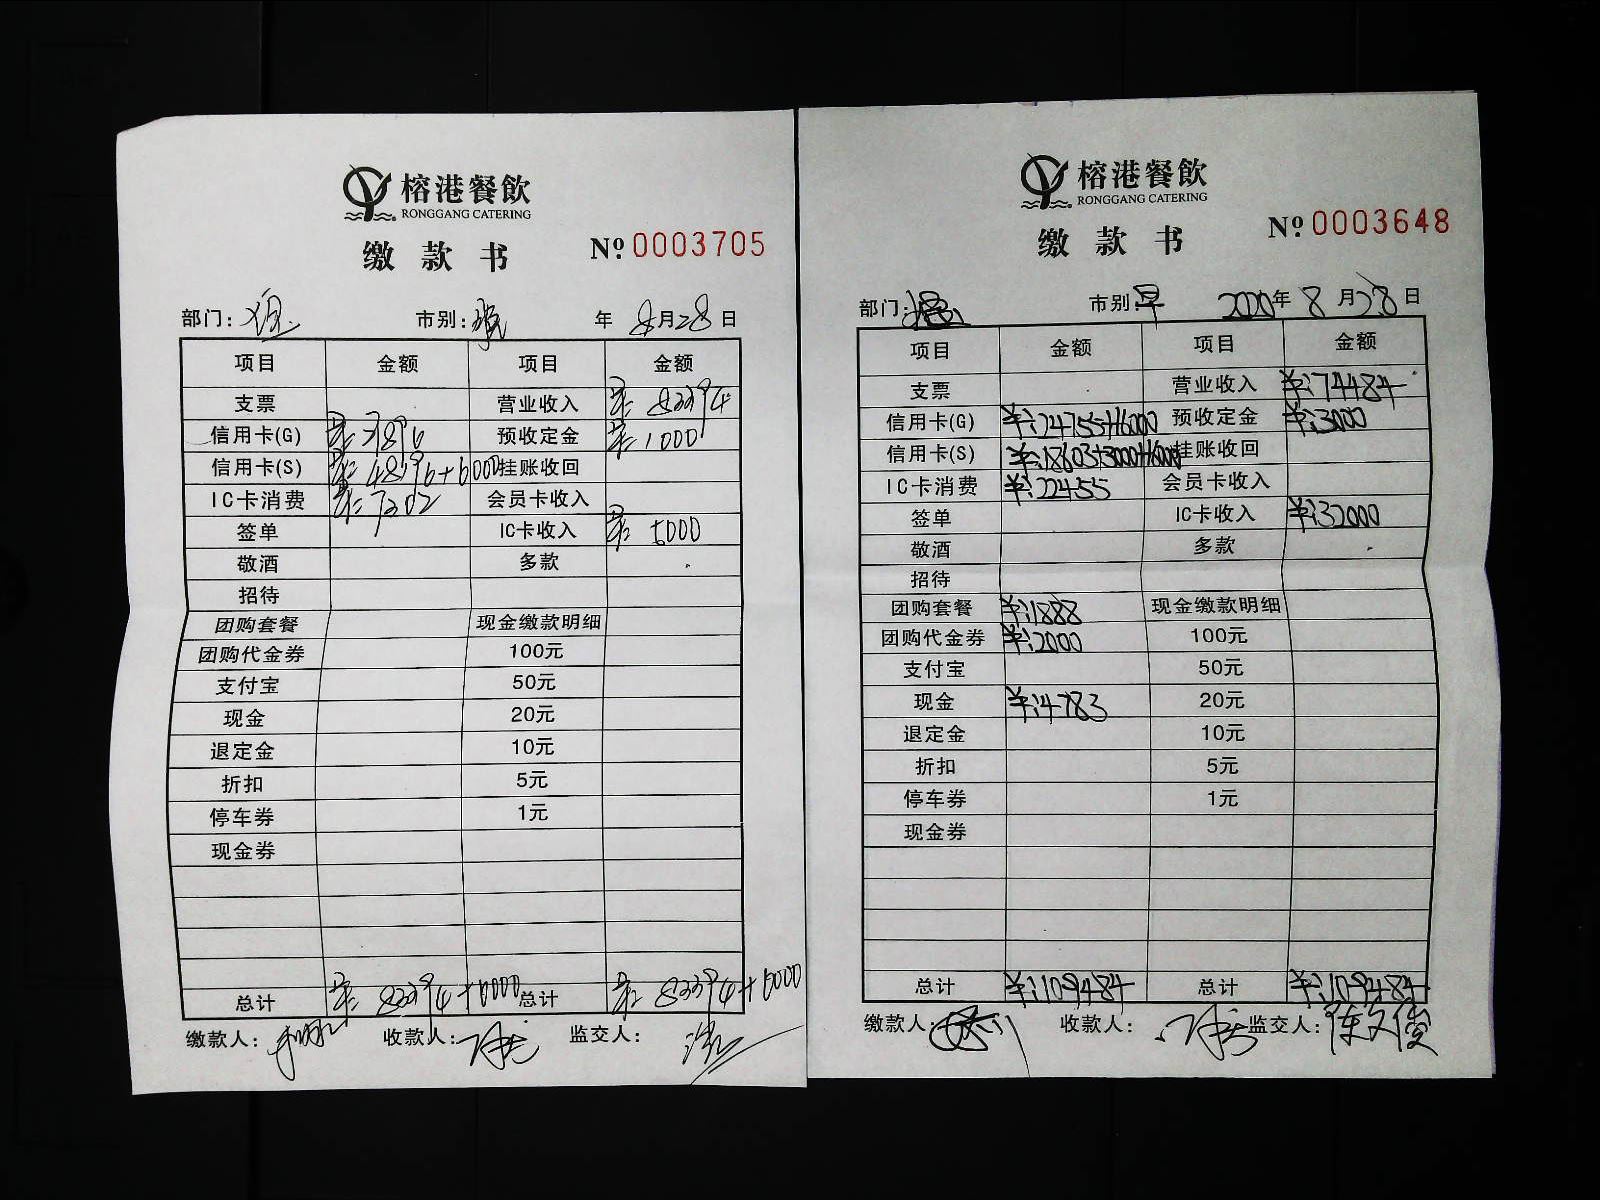 榕港餐飲
RONGGANG CATERING
缴款书
№ 0003705
部门: 市别: 年 8月28日
项目 金额 项目 金额
支票 营业收入
信用卡(G) 预收定金 1000
信用卡(S) 挂账收回
IC卡消费 7202 会员卡收入
签单 IC卡收入 5000
敬酒 多款
招待
团购套餐 现金缴款明细
团购代金券 100元
支付宝 50元
现金 20元
退定金 10元
折扣 5元
停车券 1元
现金券
总计 总计
缴款人: 收款人: 监交人:
榕港餐飲
RONGGANG CATERING
缴款书
№ 0003648
部门: 市别:早 2020年8月28日
项目 金额 项目 金额
支票 营业收入 ¥:74484
信用卡(G) ¥:24755+16000 预收定金 ¥:3000
信用卡(S) ¥:18603+3000+16000 挂账收回
IC卡消费 ¥:22455 会员卡收入
签单 IC卡收入 ¥:32000
敬酒 多款
招待
团购套餐 ¥:1888 现金缴款明细
团购代金券 ¥:2000 100元
支付宝 50元
现金 ¥:4783 20元
退定金 10元
折扣 5元
停车券 1元
现金券
总计 ¥:109484 总计 ¥:109484
缴款人: 收款人: 监交人:陈文俊